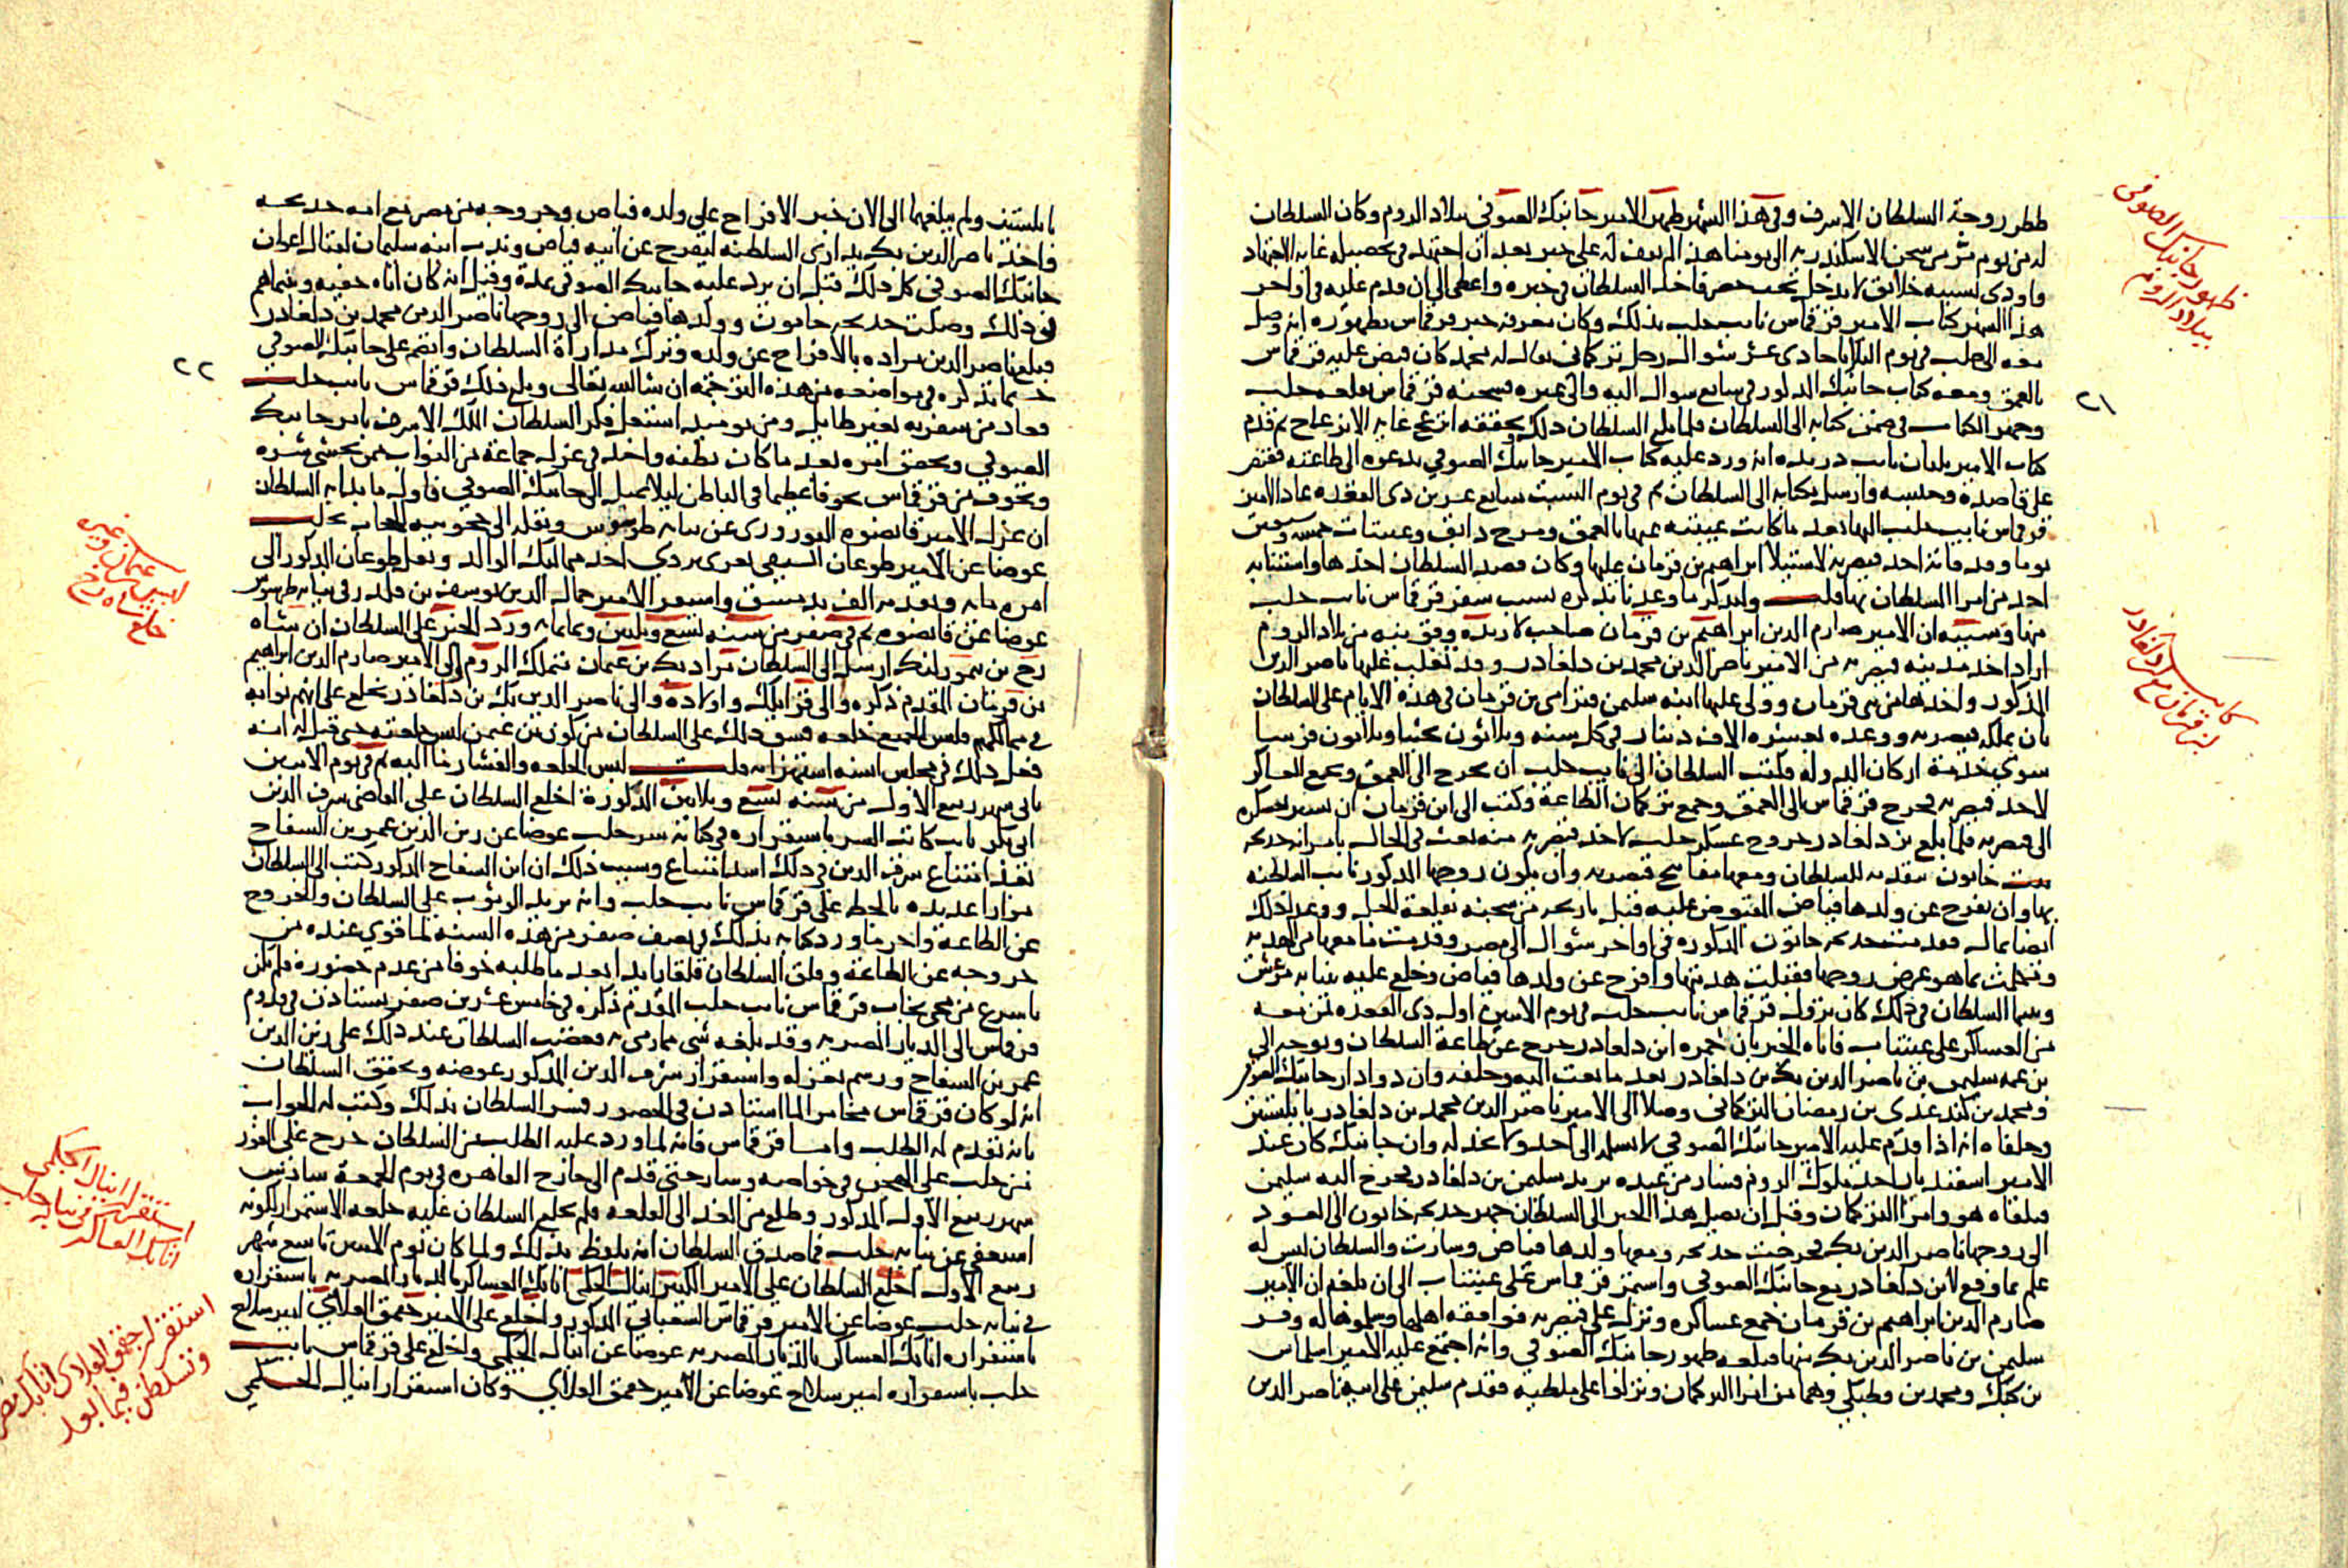 ططر زوجة السلطان الاشرف وفي هذا الشهر ظهر الامير جانبك الصوفي ببلاد الروم وكان السلطان
له من يوم فر من سجن الاسكندريه الى يومنا هذا لم يقف له على خبر بعد ان اجتهد في تحصيله غايه الاجتهاد
واودى بسببه خلايق لا تدخل تحت حصر فاخذ السلطان في خبره واعطى الى ان قدم عليه في اواخر
هذا الشهر كتاب الامير قرقماس نايب حلب بذلك وكان معرفه خبر قرقماس بظهوره انه وصل
بعد الى حلب في يوم الثلاثا حادي عشر شوال رجل تركماني يقال له محمد كان قبض عليه قرقماس
بالعمق ومعه كتاب جانبك المذكور في سابع شوال اليه والى غيره فسجنه قرقماس بقلعه حلب
وجهز الكتاب في ضمن كتابه الى السلطان فلما بلغ السلطان ذلك وتحققه انزعج غايه الانزعاج ثم قدم
كتاب الامير بلبان نايب درنده انه ورد عليه كتاب الامير جانبك الصوفي يدعوه الى طاعته فقبض
على قاصده وحبسه وارسل بكتابه الى السلطان ثم في يوم السبت سابع عشرين ذي القعده عاد الامير
قرقماس نايب حلب اليها بعد ما كانت غيبته عنها بالعمق ومرج دابق وعينتاب خمسه وسبعين
يوما وقد فاته اخذ قيصريه لاستيلا ابراهيم بن قرمان عليها وكان قصد السلطان اخذها واستنابه
احد من امرا السلطان بها قلت ولنذكر ما وعدنا بذكره بسبب سفر قرقماس نايب حلب
منها وسببه ان الامير صارم الدين ابراهيم بن قرمان صاحب لارنده وقونيه من بلاد الروم
اراد اخذ مدينه قيصريه من الامير ناصر الدين محمد بن دلغادر وقد تغلب عليها ناصر الدين
المذكور واخذها من بني قرمان وولى عليها ابنه سليمن فترامى بن قرمان في هذه الايام على السلطان
بان يملكه قيصريه ووعده بعشره الاف دينار في كل سنه وثلاثون بختيا وثلاثون فرسا
سوى خدمة اركان الدوله فكتب السلطان الى نايب حلب ان يخرج الى العمق ويجمع العساكر
لاخذ قيصريه فخرج قرقماس الى العمق وجمع تركمان الطاعة وكتب الى ابن قرمان ان يسير بعسكره
الى قيصريه فلما بلغ بن دلغادر خروج عسكر حلب لاخذ قيصريه منه بعث في الحال بامراته خديجه
خاتون بتقدمه للسلطان ومعها مفاتيح قيصريه وان يكون زوجها المذكور نايب السلطنه
بها وان يفرج عن ولدها فياض المقبوض عليه قبل تاريخه من سجنه بقلعة الجبل ووعد لذلك
ايضا بمال فقدمت خديجه خاتون المذكوره في اواخر شوال الى مصر وقدمت ما معها من الهديه
وتكلمت بما هو غرض زوجها فقبلت هديتها وافرج عن ولدها فياض وخلع عليه بنيابه مرعش
وبينما السلطان في ذلك كان نزول قرقماس نايب حلب في يوم الاثنين اول ذي القعده بمن معه
من العساكر على عينتاب فاتاه الخبر بان حمزه ابن دلغادر خرج عن طاعة السلطان وتوجه الى
بن عمه سليمن بن ناصر الدين بك بن دلغادر بعد ما بعث اليه وحلفه وان دوادار جانبك الصوفي
ومحمد بن كندغدي بن رمضان التركماني وصلا الى الامير ناصر الدين محمد بن دلغادر بابلستين
وحلفاه انه اذا قدم عليه الامير جانبك الصوفي لا يسلمه الى احد ولا يخذله وان جانبك كان عند
الامير اسفنديار احد ملوك الروم فسار من عنده يريد سليمن بن دلغادر فخرج اليه سليمن
فتلقاه هو وامرا التركمان وقبل ان يصل هذا الخبر الى السلطان جهز خديجه خاتون الى العود
الى زوجها ناصر الدين بك فخرجت خديجه ومعها ولدها فياض وسارت والسلطان ليس له
علم بما وقع لابن دلغادر مع جانبك الصوفي واستمر قرقماس على عينتاب الى ان بلغه ان الامير
صارم الدين ابراهيم بن قرمان جمع عساكره ونزل على قيصريه فوافقه اهلها وسلموها له وفر
سليمن بن ناصر الدين بك منها فبلغه ظهور جانبك الصوفي وانه اجتمع عليه الامير اسلماس
بن كبك ومحمد بن قطبكي وهما من امرا التركمان ونزلوا على ملطيه فقدم سليمن على ابيه ناصر الدين
ظهور جانبك الصوفي
ببلاد الروم
٢١
بابلستين ولم يبلغهما الى الان خبر الافراج على ولده فياض وخروجه من مصر مع امه خديجه
فاخذ ناصر الدين بك يداري السلطنه ليفرج عن ابنه فياض وندب ابنه سليمان لقتال اعوان
جانبك الصوفي كل ذلك قبل ان يرد عليه جانبك الصوفي بمدة وقيل انه كان اتاه خفيه وبينما هم
في ذلك وصلت خديجه خاتون وولدها فياض الى زوجها ناصر الدين محمد بن دلغادر
فبلغ ناصر الدين مراده بالافراج عن ولده وترك مداراة السلطان وانضم على جانبك الصوفي
بما نذكره في مواضعه من هذه الترجمة ان شا الله تعالى وبلغ ذلك قرقماس نايب حلب
فعاد من سفره بغير طايل ومن يوميذ اشتغل فكر السلطان الملك الاشرف بامر جانبك
الصوفي وتحقق امره بعد ما كان يظنه واخذ في عزل جماعة من النواب ممن يخشى شره
وتخوف من قرقماس تخوفا عظيما في الباطن ليلا يميل الى جانبك الصوفي فاول ما بدا به السلطان
ان عزل الامير قانصوه النوروزي عن نيابه طرسوس ونقله الى حجوبيه الحجاب بحلب
عوضا عن الامير طوغان السيفي تغري بردي احد مماليك الوالد ونقل طوغان المذكور الى
امره مايه وتقدمه الف بدمشق واستقر الامير جمال الدين يوسف بن قلدر في نيابه طرسوس
عوضا عن قانصوه ثم في صفر من سنه تسع وثلثين وثمانمايه ورد الخبر على السلطان ان شاه
رخ بن تيمورلنك ارسل الى السلطان مراد بك بن عثمان متملك الروم والى الامير صارم الدين ابراهيم
بن قرمان المقدم ذكره والى قرايلك واولاده والى ناصر الدين بك بن دلغادر بخلع على انهم نوابه
في ممالكهم فلبس الجميع خلعه فشق ذلك على السلطان من كون بن عثمن لبس خلعته حتى قيل له انه
فعل ذلك في مجلس انسه استهزا به قلت لبس الخلعه والفشار ما اليه ثم في يوم الاثنين
ثاني شهر ربيع الاول من سنه تسع وثلاثين المذكورة اخلع السلطان على القاضي شرف الدين
ابي بكر نايب كاتب السر باستقراره في كتابة سر حلب عوضا عن زين الدين عمر بن السفاح
بعد امتناع شرف الدين في ذلك اشد امتناع وسبب ذلك ان ابن السفاح المذكور كتب الى السلطان
مرارا عديده بالحط على قرقماس نايب حلب وانه يريد الوثوب على السلطان والخروج
عن الطاعة واخر ما ورد كتابه بذلك في نصف صفر من هذه السنه لما قوي عنده من
خروجه عن الطاعة وقلق السلطان قلقا زايدا بعد ما طلبه خوفا من عدم حضوره فلم يكن
باسرع من مجي نجاب قرقماس نايب حلب المقدم ذكره في خامس عشرين صفر يستاذن في قدوم
قرقماس الى الديار المصريه وقد بلغه شي مما رمي به فغضب السلطان عند ذلك على زين الدين
عمر بن السفاح ورسم بعزله واستقرار شرف الدين المذكور عوضه وتحقق السلطان
انه لو كان قرقماس مخامرا لما استاذن في الحضور فسر السلطان بذلك وكتب له الجواب
بانه تقدم له الطلب واما قرقماس فانه لما ورد عليه الطلب من السلطان خرج على الفور
من حلب على الهجن في خواصه وسار حتى قدم الى خارج القاهره في يوم الجمعة سادس
شهر ربيع الاول المذكور وطلع من الغد الى القلعه فلم يخلع السلطان عليه خلعه الاستمرار لكونه
استعفى عن نيابه حلب فما صدق السلطان انه تلفظ بذلك ولما كان يوم الاثنين تاسع شهر
ربيع الاول اخلع السلطان على الامير الكبير اينال الجكمي اتابك العساكر بالديار المصريه باستقراره
في نيابه حلب عوضا عن الامير قرقماس الشعباني المذكور واخلع على الامير جقمق العلائي امير سلاح
باستقراره اتابك العساكر بالديار المصريه عوضا عن اينال الجكمي واخلع على قرقماس نايب
حلب باستقراره امير سلاح عوضا عن الامير جقمق العلائي وكان استقرار اينال الجكمي
٢٢
لبس عثمان وغيره
خلع شاه رخ
استقرار اينال الجكمي
اتابك العساكر في نيابه حلب
استقرار جقمق العلائي اتابك مصر
وتسلطن فيما بعد